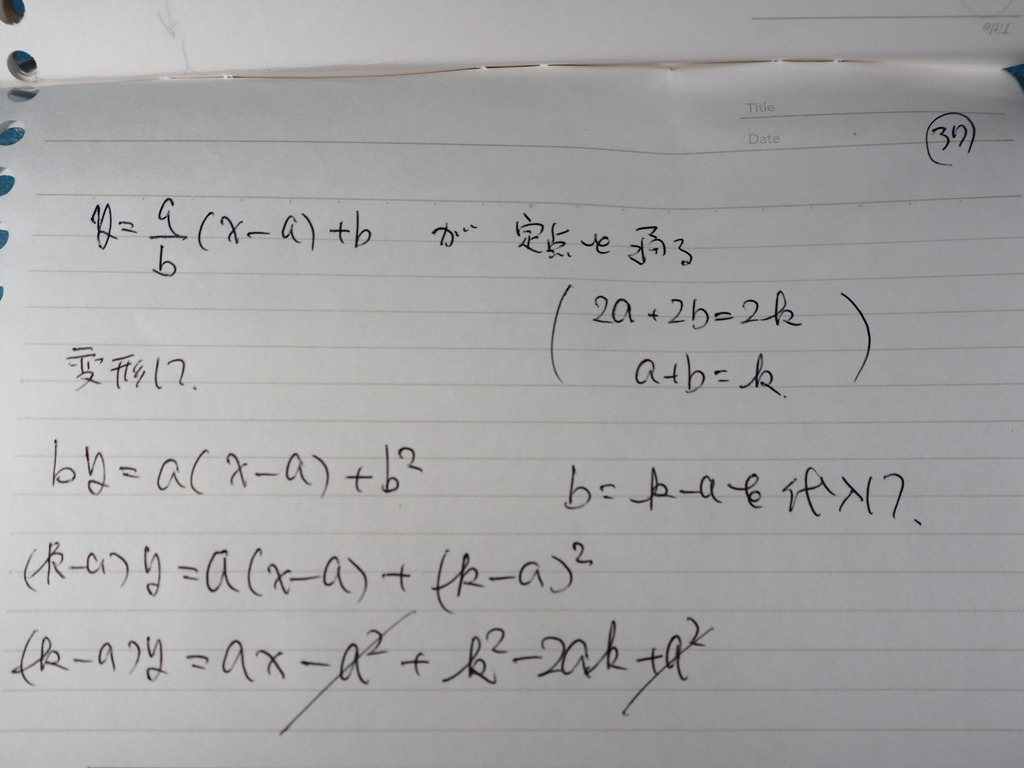 Title
Title
Date
37
y = a/b (x-a)+b が 定点を通る
(2a+2b=2k
a+b=k.)
変形して、
by = a(x-a)+b²
b=k-aを代入して、
(k-a)y = a(x-a)+(k-a)²
(k-a)y = ax-a²+k²-2ak+a²